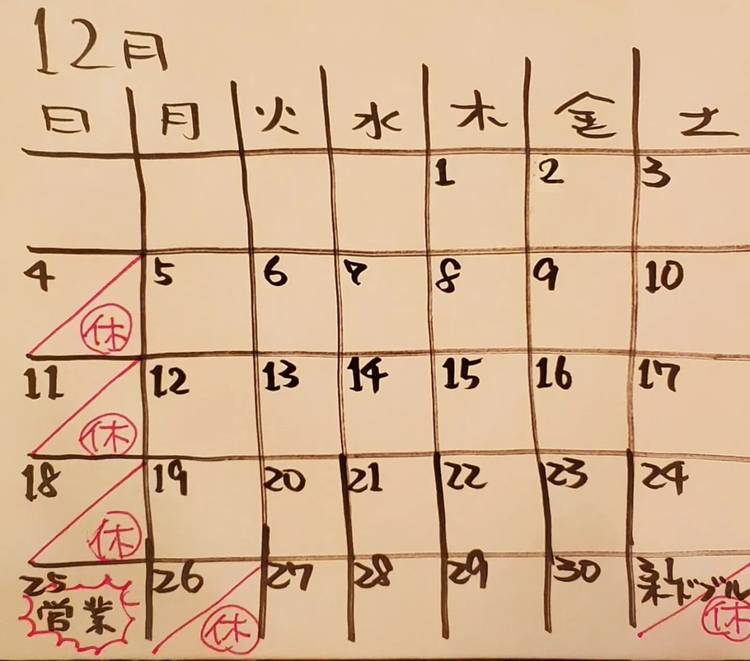 12月
日 月 火 水 木 金 土
1 2 3
4 5 6 7 8 9 10
休
11 12 13 14 15 16 17
休
18 19 20 21 22 23 24
休
25 26 27 28 29 30 31
営業 休 休